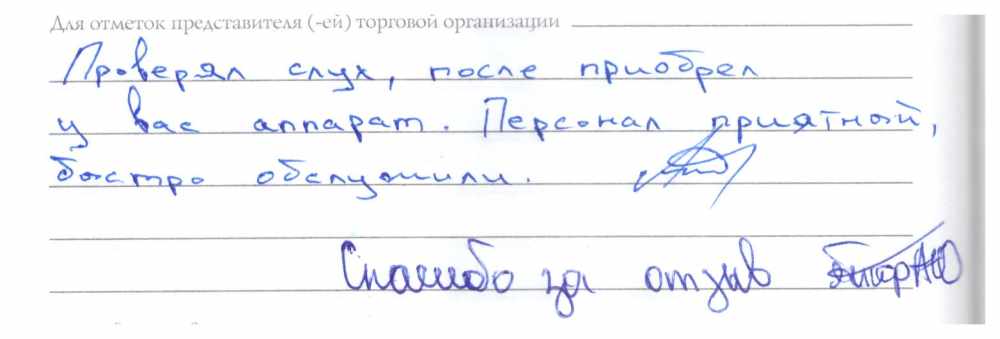 Для отметок представителя (-ей) торговой организации
Проверял слух, после приобрел
у вас аппарат. Персонал приятный,
быстро обслужили.
Спасибо за отзыв